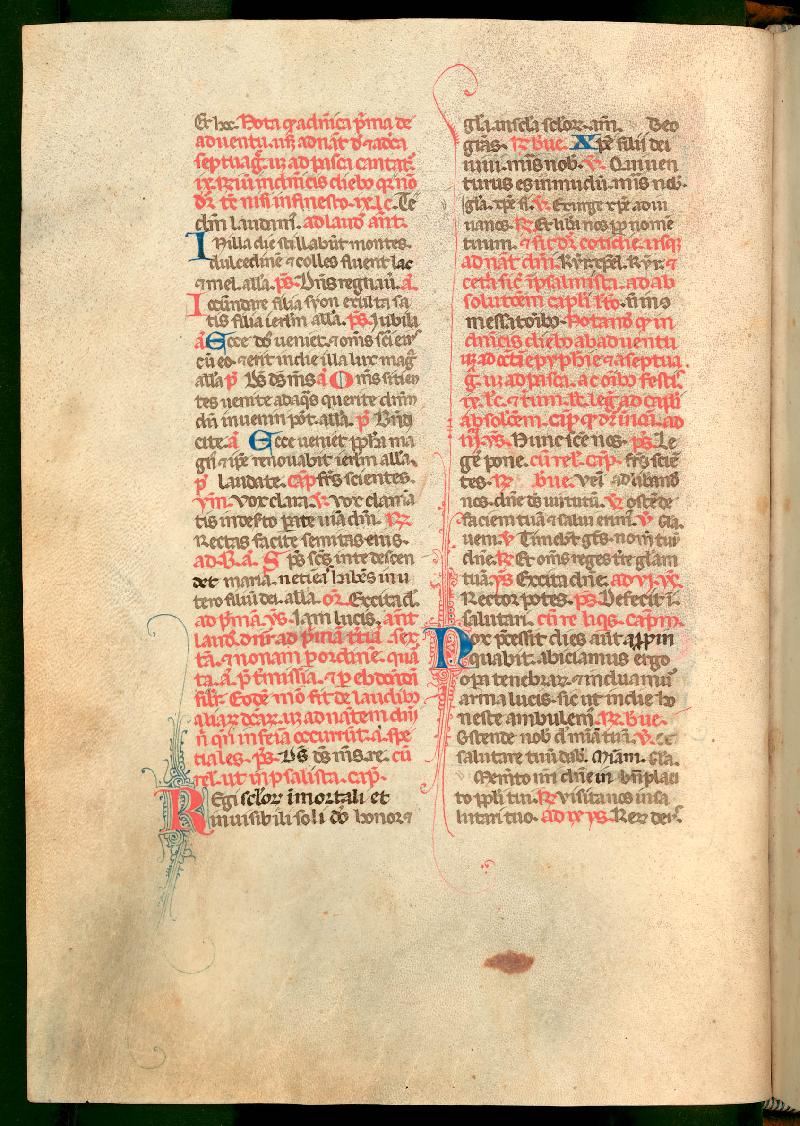 Et hec. Nota q̄ a dn̄ica p̄ma de
aduentu. usq̄ ad nat̄ d̄. & a dn̄ca
septuaḡ. uƺ ad pasca cantat̄
ix. R̄ in dn̄icis diebƺ q̄ nō
dr̄ te nisi in festo. ix. lc. Te
dm̄ laudam̄. ad laud̄ ant̄.
In illa die stillabūt montes.
dulcedinē & colles fluent lac
& mel. alla. ps̄. Dn̄s regnau̅. a.
Iocundare filia syon exulta sa
tis filia ierl̄m alla. ps̄. Jubila
a Ecce dn̄s ueniet. & om̄s sc̄i eiꝰ
cū eo. & erit in die illa lux mag̅
alla p̄ Ds̄ ds̄ ms̄ a Om̄s sitien
tes uenite ad aqs̄ querite dn̄m
dū inueniri pōt. alla. p̄ Bn̄di
cite. a Ecce ueniet ppha ma
gn̄ & ip̄e renouabit ierl̄m alla.
p̄ laudate. Cap̄ frs̄ scientes.
ym̄. Vox clara. v̄ vox clama
tis in deserto parate uiā dn̄i. R̄
Rectas facite semitas eius.
ad B. a. Sps̄ sc̄s in te descen
det maria. ne timeas habebis in u
tero filiū dei. alla. or̄. Excita d̄.
ad p̄mā. ys̄. Iam lucis. ant̄
laud̄. dn̄r ad p̄mā t̄tiā. sex
tā. & nonam p̄ ordinē. qua
ta. a. p̄t̄missa. & p̄ ebdom̄
fit̄. Eodē mō fit de laudibƺ
aliaƺ dn̄caƺ. uƺ ad nat̄em dn̄i
n̄ qn̄ in feria occurrūt. a. spe
tiales. ps̄. Ds̄ ds̄ ms̄. re. cū
rel. ut in psalista. cap̄.
Regi seloƺ imortali et
inuisibili soli dō honor &
gl̄a. in sc̄la sc̄loƺ. am̄. Deo
gr̄as. R̄ bue. Xp̄e filii dei
uiui. mis̄ nob̄. v̄. Qui uen
turus es in mūdū. mis̄ nob̄.
gl̄a. xp̄e fi. v̄. Exurge xp̄e adiu
ua nos. R̄ Et libā nos pp̄ nomē
tuum. & sic dr̄ cotidie. usq̄
ad nat̄ dn̄i. Kyr. xp̄el. Kyr. &
cet̄a sic̄ ī psalmista. ad ab
solutōem capl̄i lc̄o. Sm̄o
messatoribƺ. Notand̄ q̄ in
dn̄icis diebƺ ab aduentu
uƺ ad oct̄ā epyphie & a septua
g̅. uƺ ad pasca. ac oībƺ festi̅.
ix. lc. & tūm lc̄. leḡ. ad capl̄i
absolōem. cap̄. q̄ dr̄ in oct̄. ad
iij. ys̄. Nunc sc̄e nos. ps̄. Le
gē pone. cū rel̄. cap̄. frs̄ sciē
tes. R̄ bue. veni ad libanđ
nos. dn̄e ds̄ uirtutū. v̄ oste̅de
faciem tuā & salui erim̄. v̄ Gl̄a.
uem. v̄ Timebt̄ gt̄s. nom̄ tuū
dn̄e. R̄ Et om̄s reges t̄re glām
tuā. ys̄ Excita dn̄e. ad vj. ys̄.
Rector potes. ps̄ Defecit ī.
salutari. cū re liqs̄. cap̄m.
Nox p̄cessit dies aūt appin
quabit. abiciamus ergo
opa tenebraƺ. & induamū
arma lucis. sic̄ ut in die ho
neste ambulem̄. R̄. bue.
Ostende nob̄ d̄. miām tuā. v̄. &
salutare tuū da n̄. Miam. Gl̄a.
Memēto nr̄i dn̄e in bn̄placi
to ppl̄i tui. R̄ visita nos in sa
lutari tuo. ad ix ys̄. Rex deꝰ.